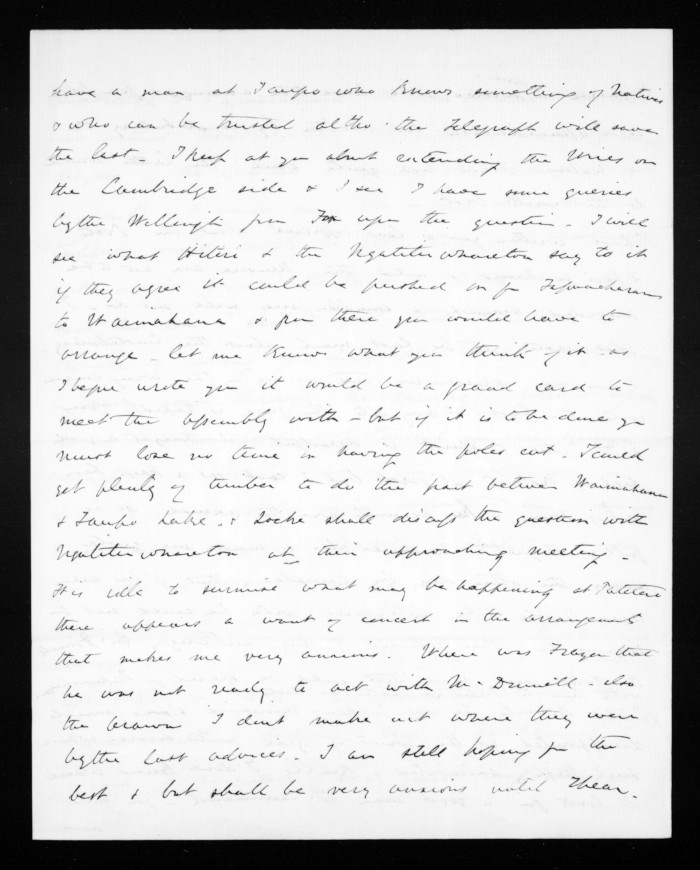 have a man at Taupo who knows something of Natives
& who can be trusted altho' the Telegraph will save
the last - I keep at you about extending the Wires on
the Cambridge side & I see I have some queries
by the Wellingtn from Fox upon the question - I will
see what Hitiri & the Ngatituwharetoa say to it
if they agree it could be pushed on fm Tapuacharuru
to Waimahana & from there you would have to
arrange - let me know what you think of it - as
I before wrote you it would be a grand card to
meet the Assembly with - but if it is to be done you
must lose no time in having the poles cut - I could
get plenty of timber to do the part between Waimahana
& Taupo Lake - & Locke shall discuss the question with
Ngatituwharetoa at their approaching meeting -
It is idle to surmise what may be happening at Patetere
there appears a want of concert in the arrangements
that makes me very anxious. Where was Frazer that
he was not ready to act with McDonnell - also
the Arawa I dont make out where they were
by the last advices. I am still hoping for the
best & but shall be very anxious until I hear.